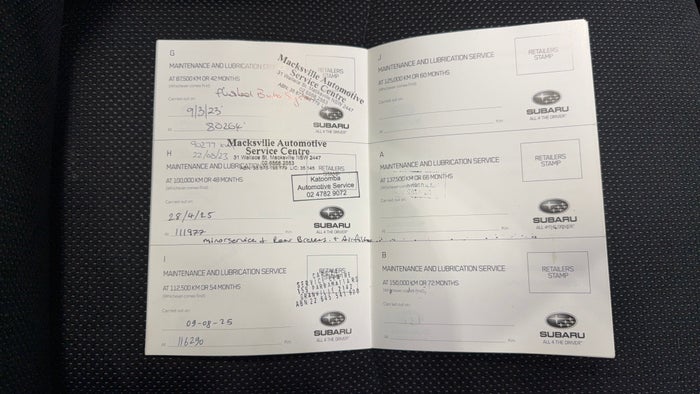 G
MAINTENANCE AND LUBRICATION SERVICE
AT 87,500 KM OR 42 MONTHS
(Whichever comes first)
RETAILERS
STAMP
Macksville Automotive
Service Centre
31 Wallace St, Macksville NSW 2447
Carried out on:
9/3/23
At 80264
SUBARU
ALL 4 THE DRIVER
90277
22/08/23
Macksville Automotive
Service Centre
31 Wallace St, Macksville NSW 2447
02 6568 2053
H
MAINTENANCE AND LUBRICATION SERVICE
AT 100,000 KM OR 48 MONTHS
(Whichever comes first)
RETAILERS
Katoomba
Automotive Service
02 4782 9072
Carried out on:
28/4/25
At 111977
SUBARU
ALL 4 THE DRIVER
minor service + Rear Brakes + Airfilter
I
MAINTENANCE AND LUBRICATION SERVICE
AT 112,500 KM OR 54 MONTHS
(Whichever comes first)
RETAILERS
STAMP
Carried out on:
09-08-25
At 116290 Km
SUBARU
ALL 4 THE DRIVER
J
MAINTENANCE AND LUBRICATION SERVICE
AT 125,000 KM OR 60 MONTHS
(Whichever comes first)
RETAILERS
STAMP
Carried out on:
At Km
SUBARU
ALL 4 THE DRIVER
A
MAINTENANCE AND LUBRICATION SERVICE
AT 137,500 KM OR 66 MONTHS
RETAILERS
STAMP
Carried out on:
At
SUBARU
ALL 4 THE DRIVER
B
MAINTENANCE AND LUBRICATION SERVICE
AT 150,000 KM OR 72 MONTHS
RETAILERS
STAMP
Carried out on:
At Km
SUBARU
ALL 4 THE DRIVER